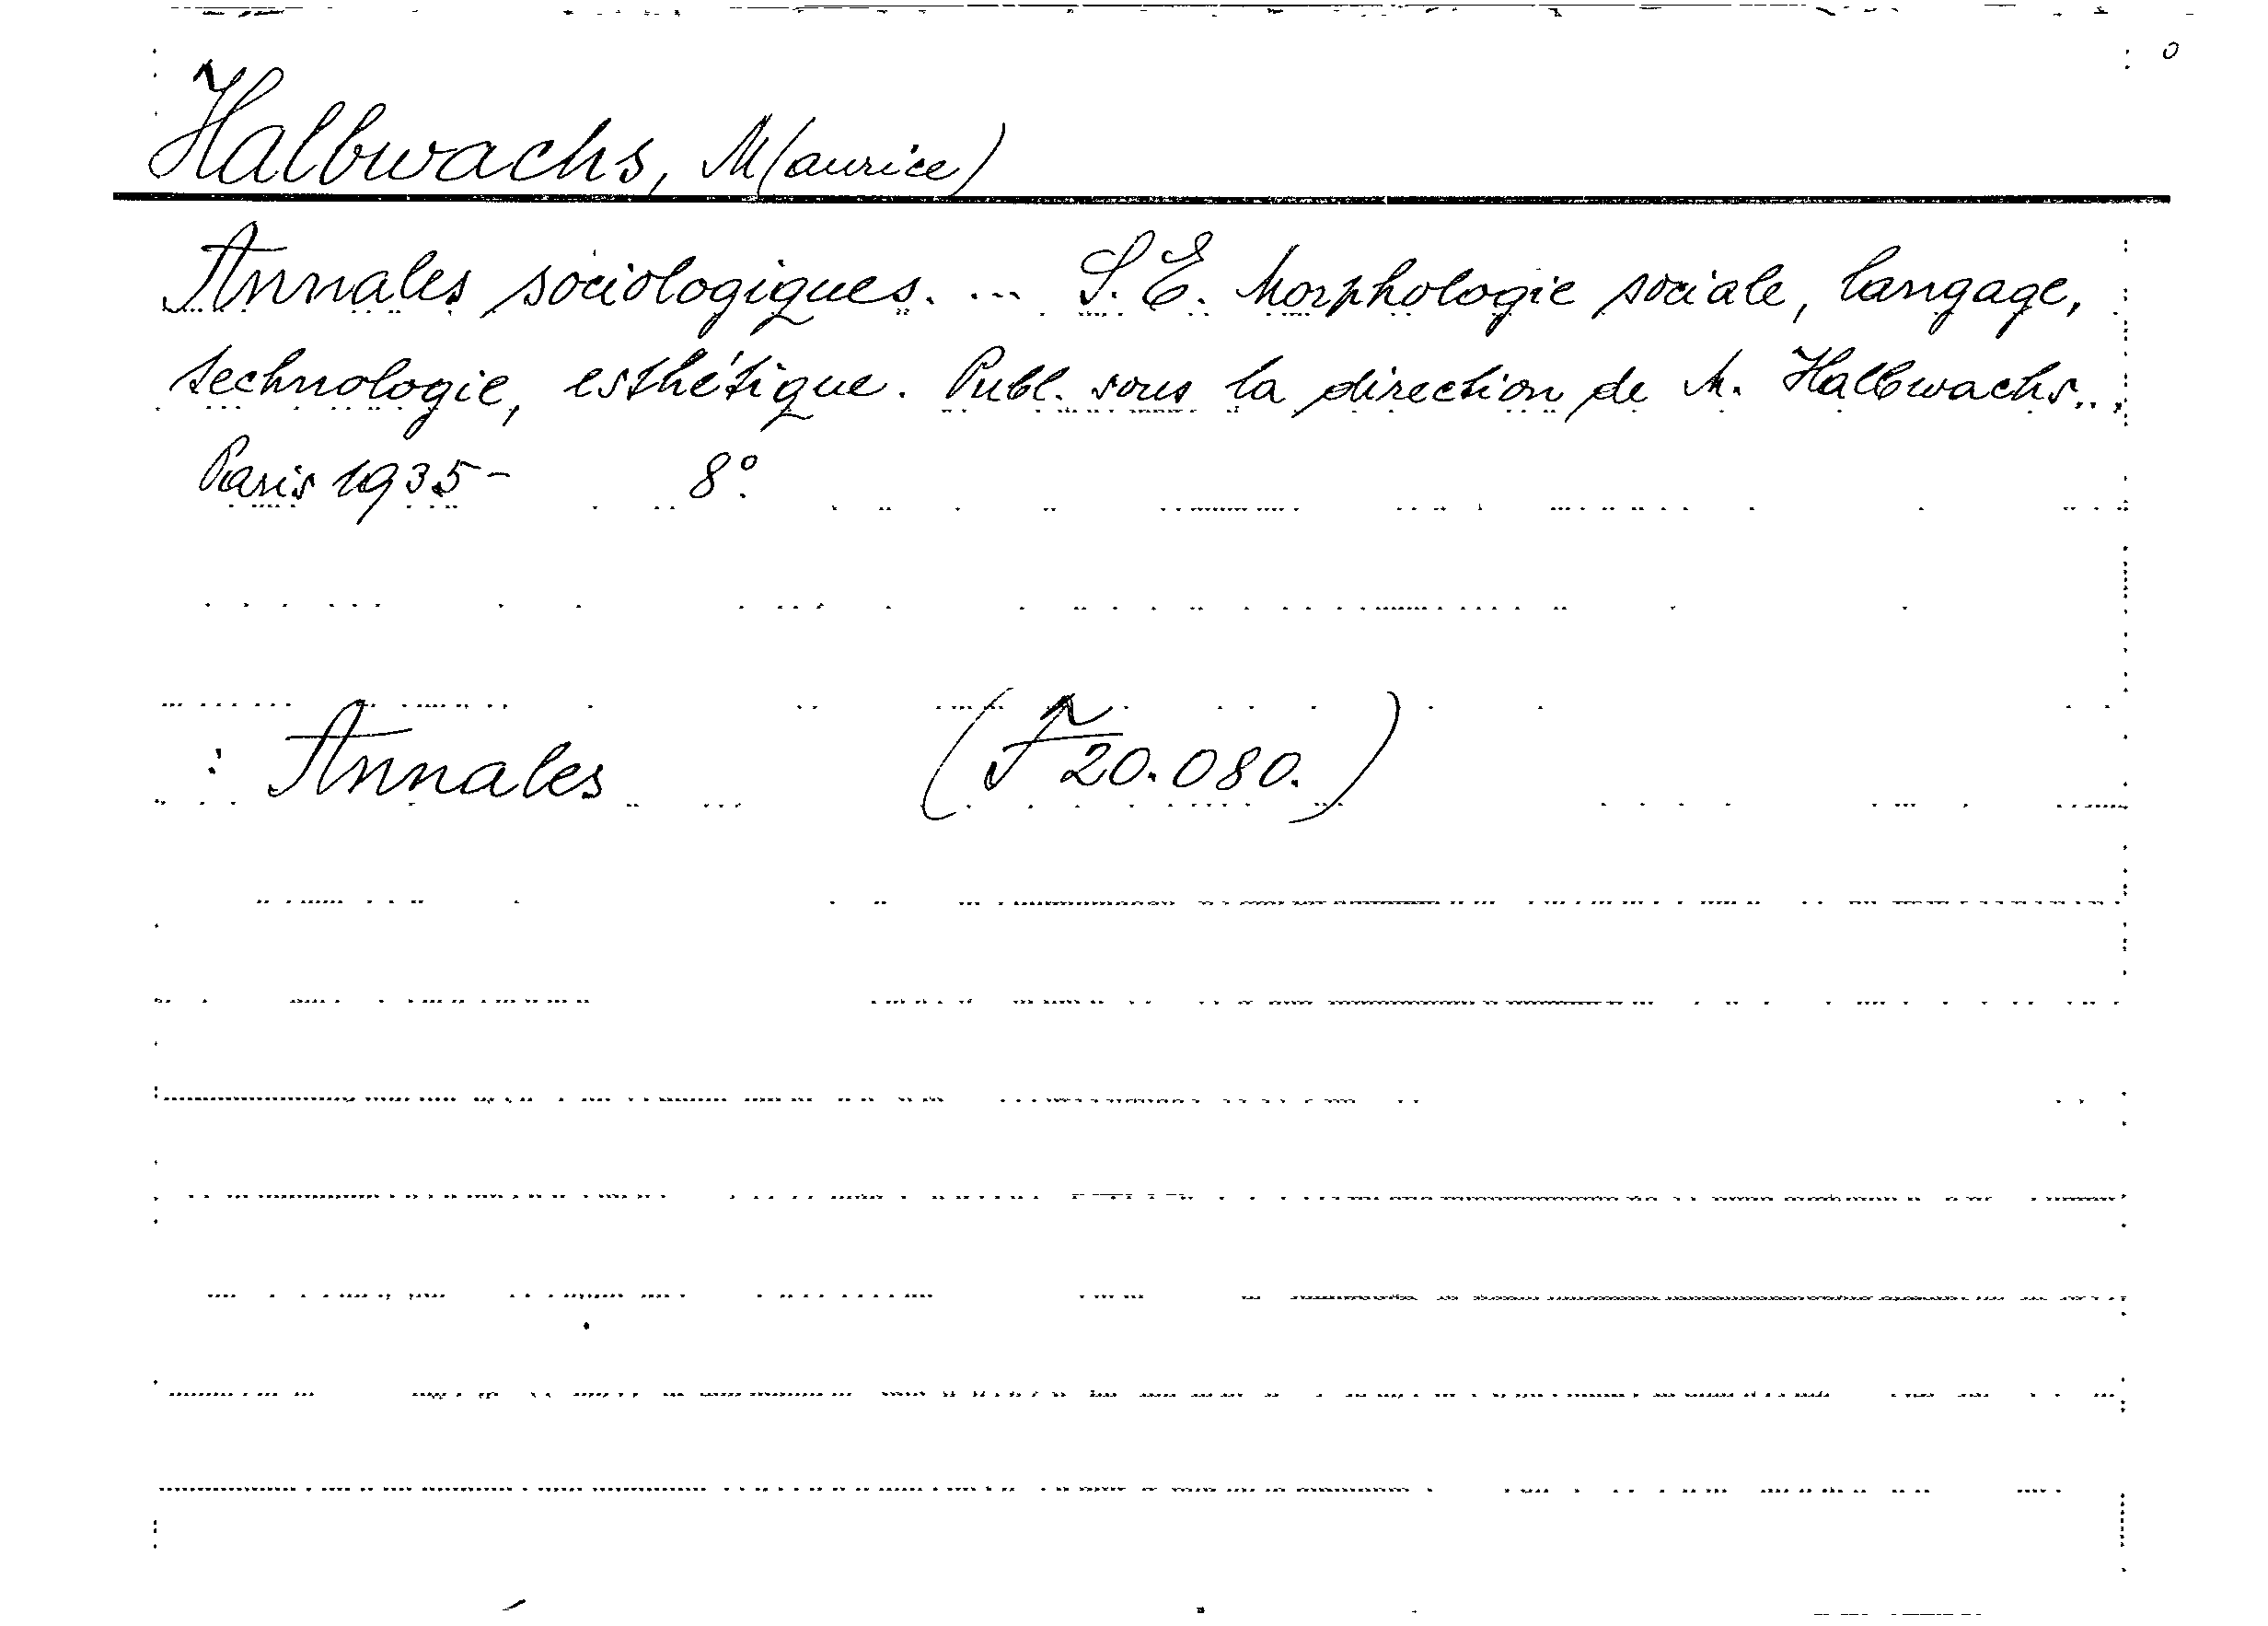 Halbwachs, M(aurice)
Annales sociologiques. ... S. E. Morphologie sociale, langage,
technologie, esthétique. Publ. sous la direction de M. Halbwachs...
Paris 1935- 8°.
: Annales (F 20.080.)